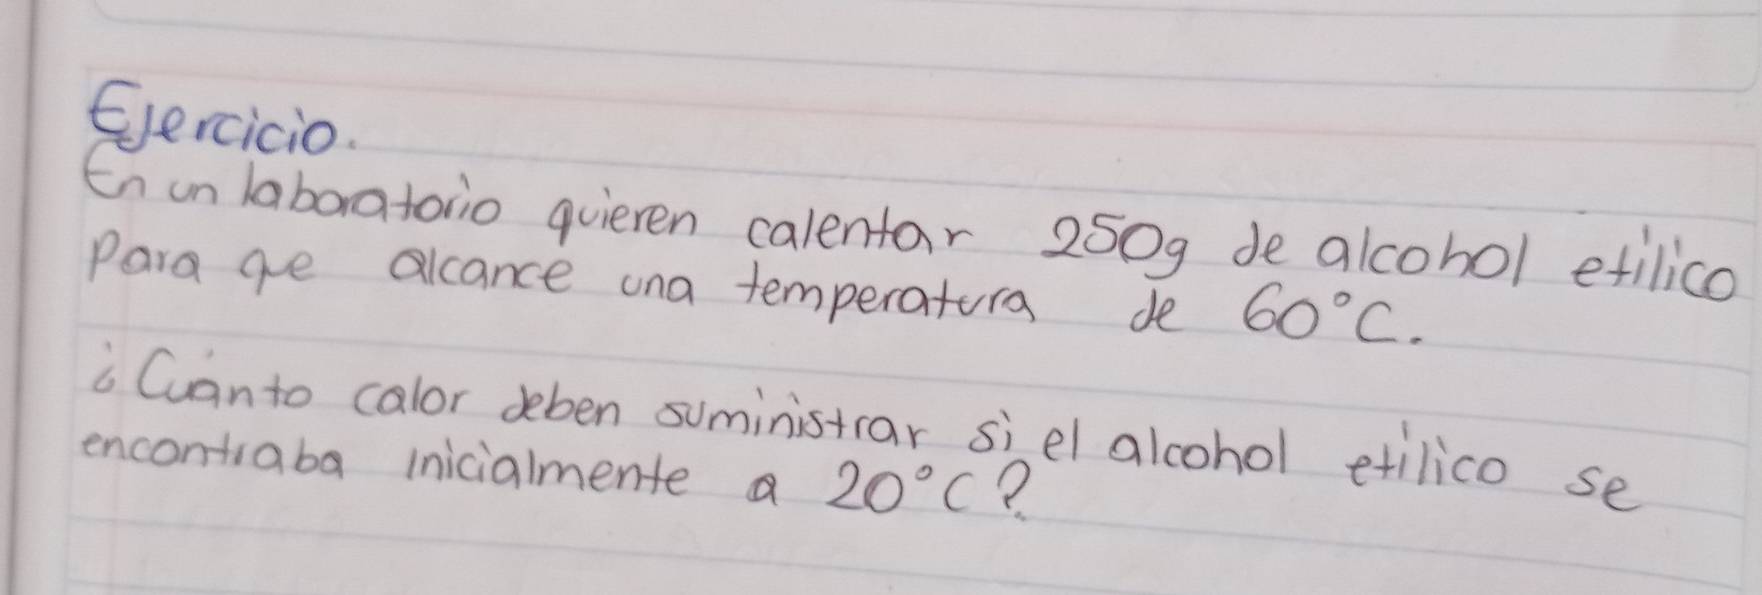 Ejercicio.
En un laboratorio quieren calentar 250g de alcohol etílico
Para qe alcance una temperatura de 60°C.
¿Cuánto calor deben suministrar si el alcohol etílico se
encontraba inicialmente a 20°C?